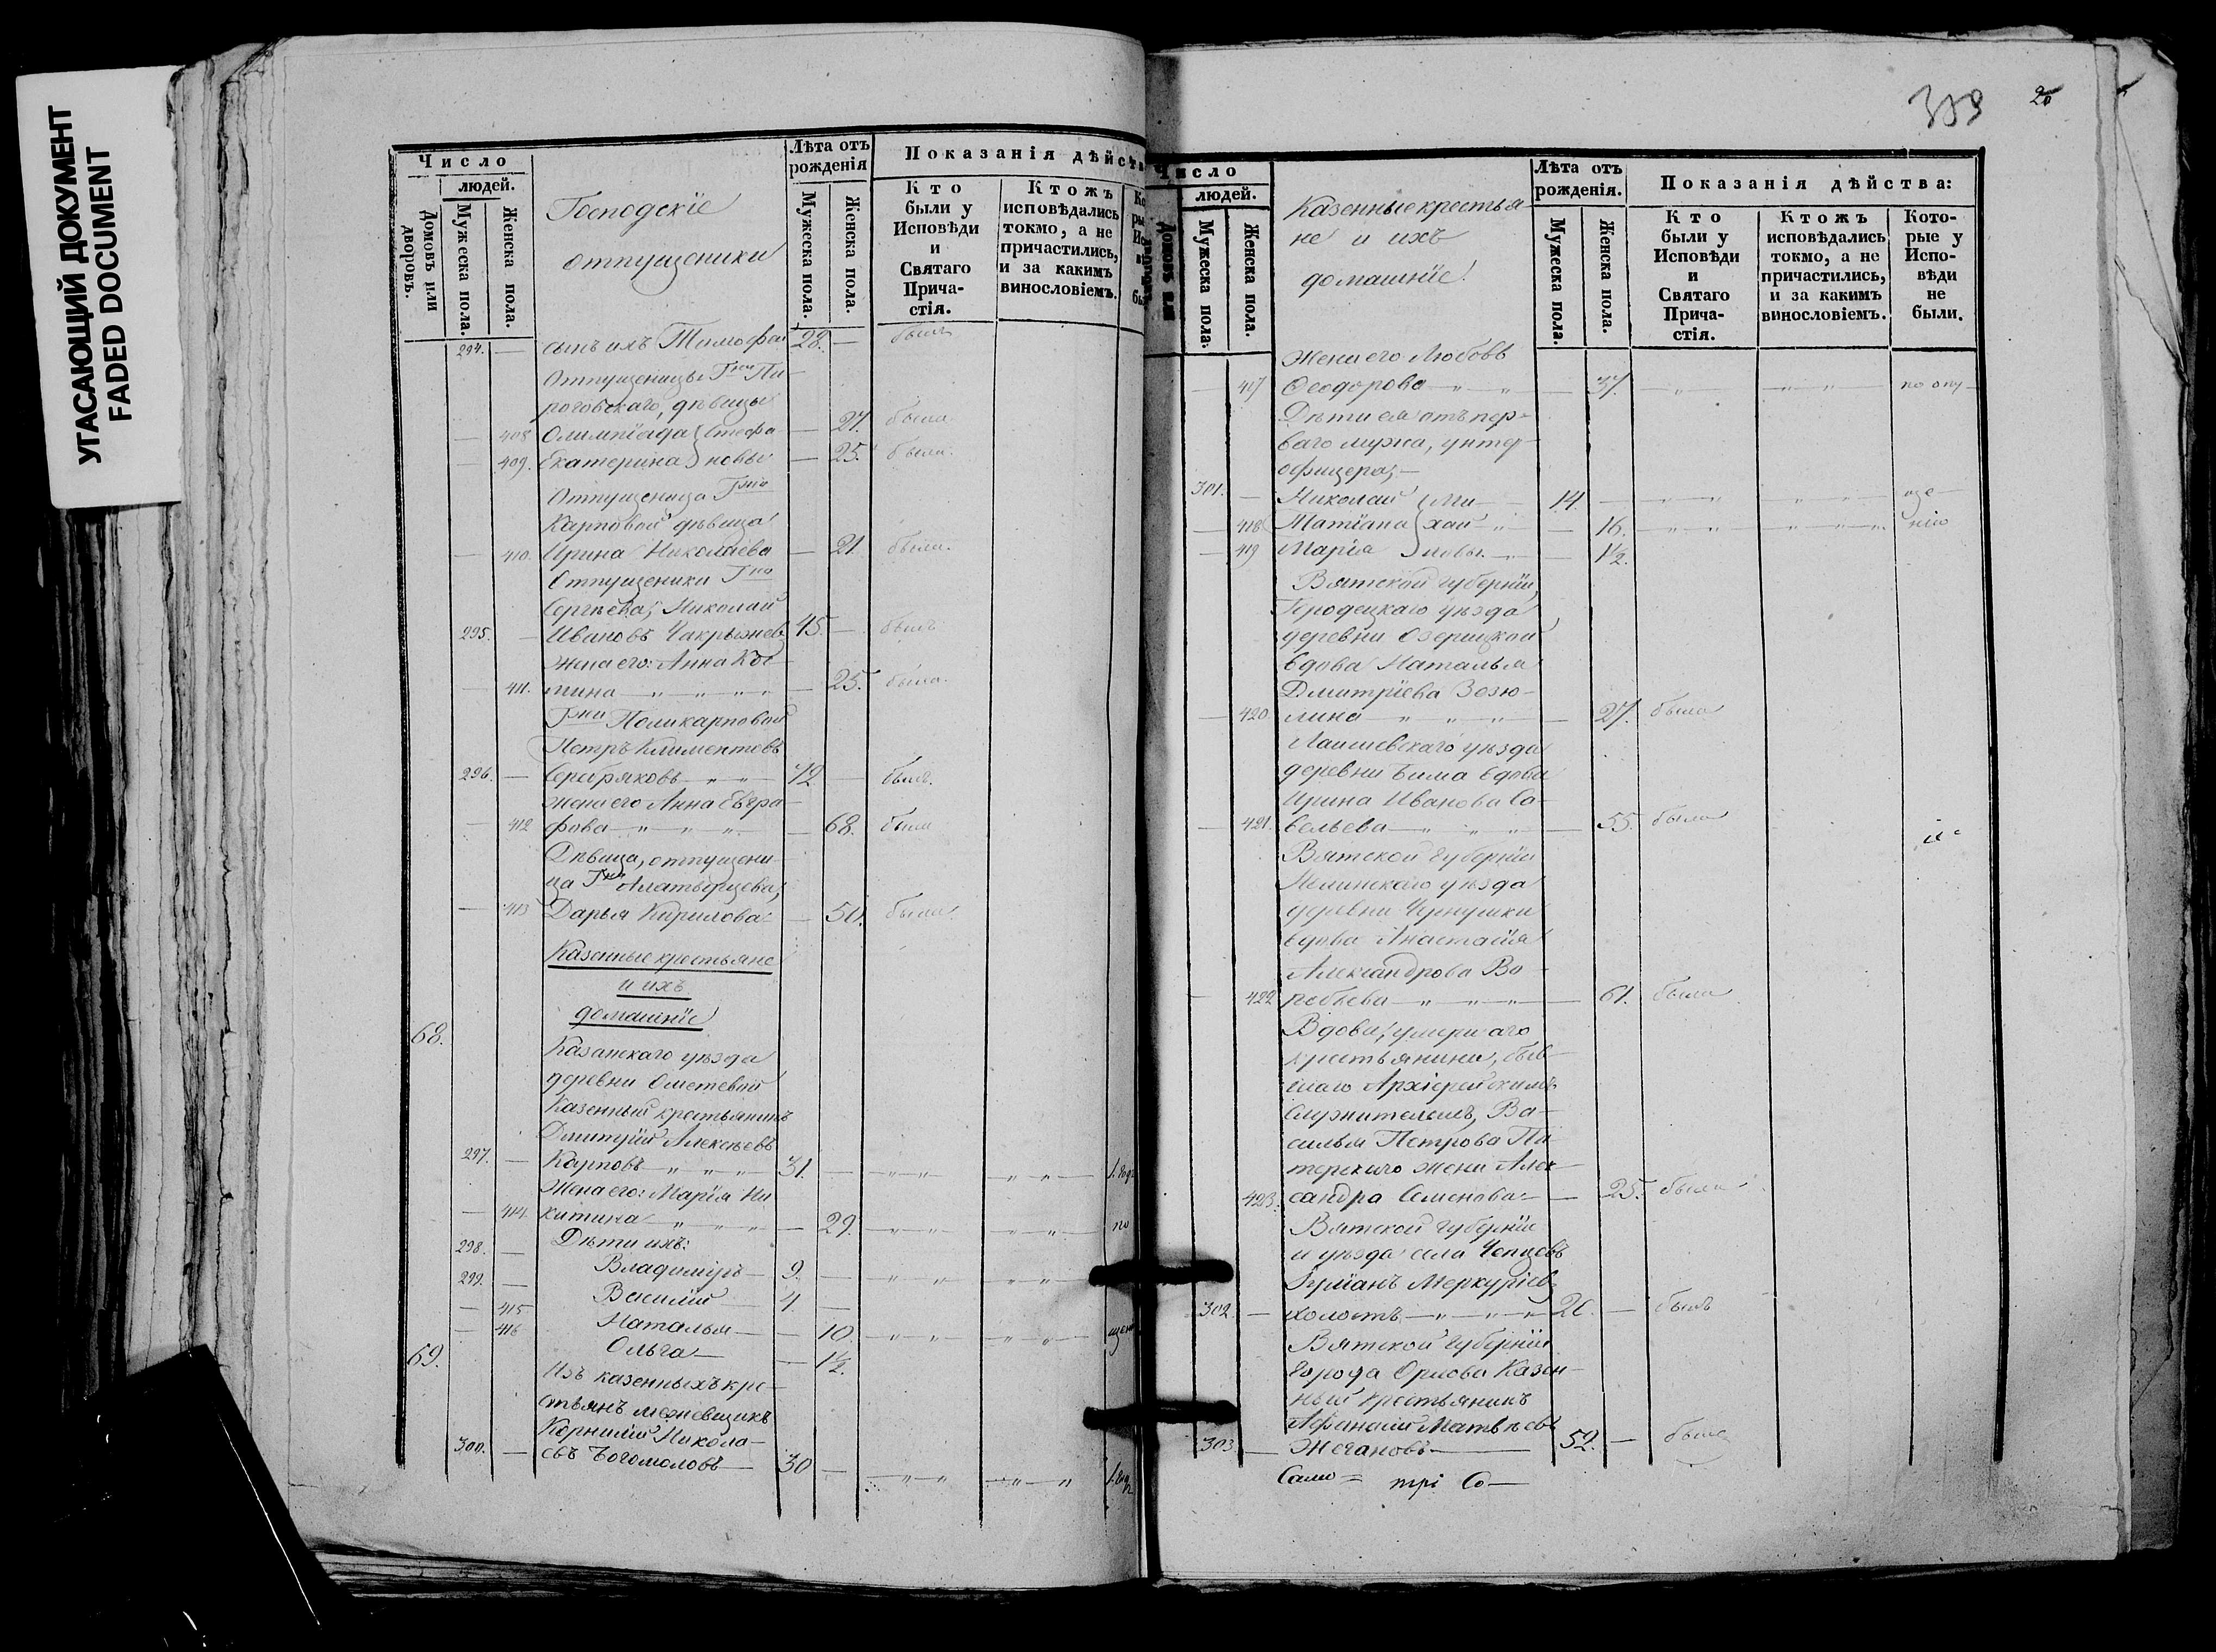 УГАСАЮЩИЙ ДОКУМЕНТ
FADED DOCUMENT
Число
людей.
Домовъ или дворовъ.
Мужеска пола.
Женска пола.
Господскіе
отпущеники
Лѣта отъ рожденія
Мужеска пола.
Женска пола.
Показанія дѣйств
Кто были у Исповѣди и Святаго Прича-стія.
Ктожъ исповѣдались токмо, а не причастились, и за какимъ винословіемъ.
294. — сынъ ихъ Тимофей 28. — былъ
Отпущеницы Гжи Пи-
роговскаго, дѣвицы
— 408 Олимпіада } Стефа — 27. была
— 409. Екатерина } новы — 25. была.
Отпущеница Гжи
Карповой дѣвица
— 410. Ирина Николаева — 21. была.
Отпущеники Гна
Сергѣева; Николай
295. — Ивановъ 45. — былъ
жена его: Анна Кос-
— 411. мина — 25. была.
Гжи Поликарповой
Петръ Климентовъ
296. — Серебряковъ 72 — былъ.
жена его Анна Евгра-
— 412 фова — 68. была
Дѣвица, отпущени-
ца Гжи
— 413 Дарья Кирилова — 50. была.
Казенные крестьяне
и ихъ
домашніе
68.
Казанскаго уѣзда
деревни Ометевой
Казенный крестьянинъ
Дмитрій Алексѣевъ
297. — Карповъ 31. — 1. годъ
Жена его: Марія Ни-
— 414. китина — 29. по
298. — Дѣти ихъ:
Владиміръ 9. —
299. — Василій 4 —
— 415 Наталья — 10. щен
— 416 Ольга — 1½.
69.
Изъ казенныхъ кре-
стьянъ межевщикъ
Корнилій Никола-
300. — евъ Богомоловъ 30 —
359 20
Число
людей.
Домовъ или
Мужеска пола.
Женска пола.
Казенные крестья
не и ихъ
домашніе
Лѣта отъ рожденія.
Мужеска пола.
Женска пола.
Показанія дѣйства:
Кто были у Исповѣди и Святаго Прича-стія.
Ктожъ исповѣдались токмо, а не причастились, и за какимъ винословіемъ.
Кото-рые у Испо-вѣди не были.
Жена его Любовь
— 417 Ѳеодорова — 37. по опу-
Дѣти ея отъ пер-
ваго мужа, унтер-
офицера;
301. — Николай } Ми- 14. — ще-
— 418. Татіана } хай — 16. нію
— 419 Марія } ловы. — 1½.
Вятской губерніи,
деревни Озерицкой
вдова Наталья
Дмитріева Зозю-
— 420 лина — 27. была
Лаишевскаго уѣзда
деревни Бима вдова
Ирина Иванова Са-
— 421. вельева — 55. была
Вятской губерніи
уѣзда
деревни Чернушки
вдова Анастасія
Александрова Во-
— 422 робьева — 61. была
Вдова, умершаго
крестьянина, быв-
шаго Архіерейскимъ
служителемъ, Ва-
силья Петрова Пи-
терскаго жена Алек-
423. сандра Семенова — 25. была
Вятской губерніи
и уѣзда села
Меркуріевъ
302. — холостъ 20. — былъ
Вятской губерніи
города Орлова Казен-
ный крестьянинъ
Афанасій Матвѣевъ
303 — Жегаловъ 52. — былъ
три Со—